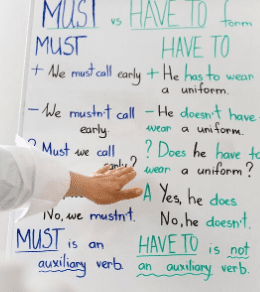 MUST vs HAVE TO form
MUST HAVE TO
+ We must call early + He has to wear
a uniform.
- We mustn't call - He doesn't have
early. wear a uniform.
? Must we call ? Does he have to
early? wear a uniform?
A Yes, he does
No, we mustn't. No, he doesn't.
MUST is an HAVE TO is not
auxiliary verb. an auxiliary verb.